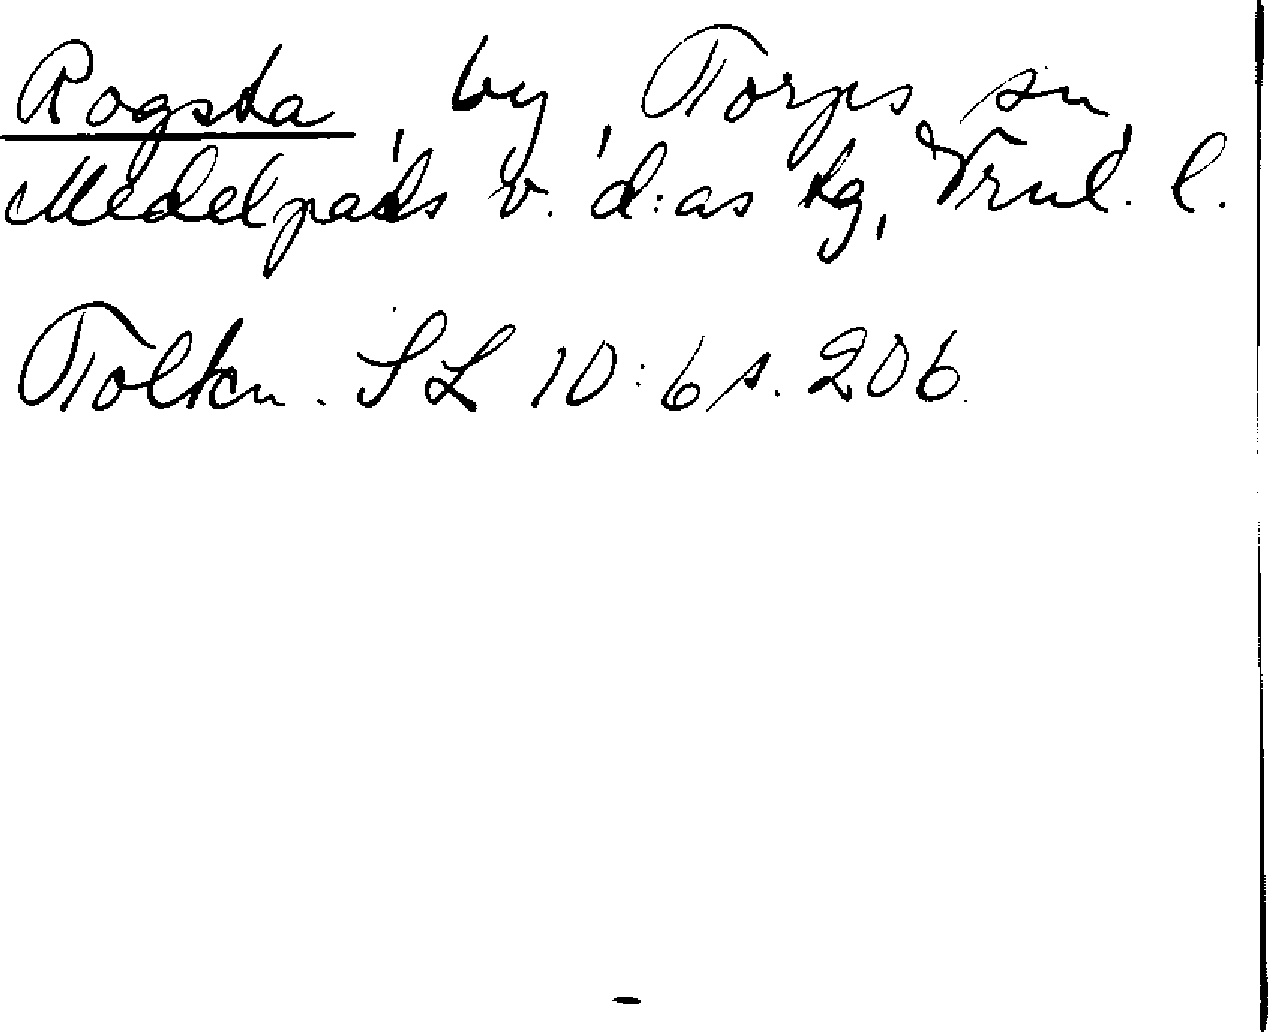 Rogsta, by, Torps sn,
Medelpads v. d:as tg, Vrnl. l.
Tolkn. SL 10:6 s. 206.